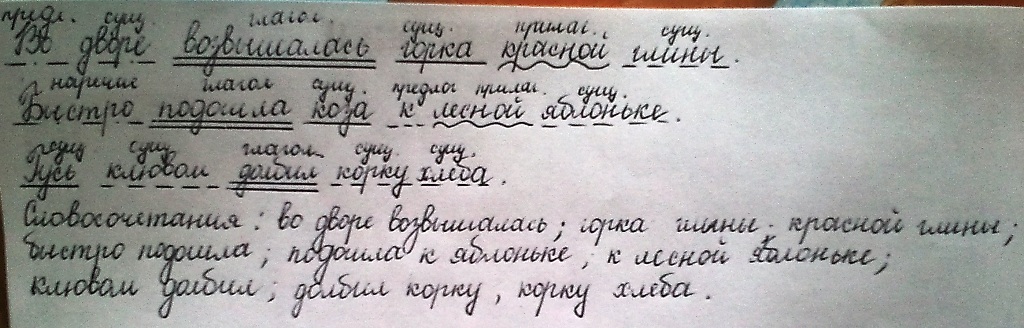 предл. сущ. глагол. сущ. прилаг. сущ.
Во дворе возвышалась горка красной глины.
наречие глагол сущ. предлог прилаг. сущ.
Быстро подошла коза к лесной яблоньке.
сущ сущ. глагол сущ. сущ.
Гусь клювом долбил корку хлеба.
Словосочетания: во дворе возвышалась; горка глины; красной глины;
быстро подошла; подошла к яблоньке; к лесной яблоньке;
клювом долбил; долбил корку, корку хлеба.